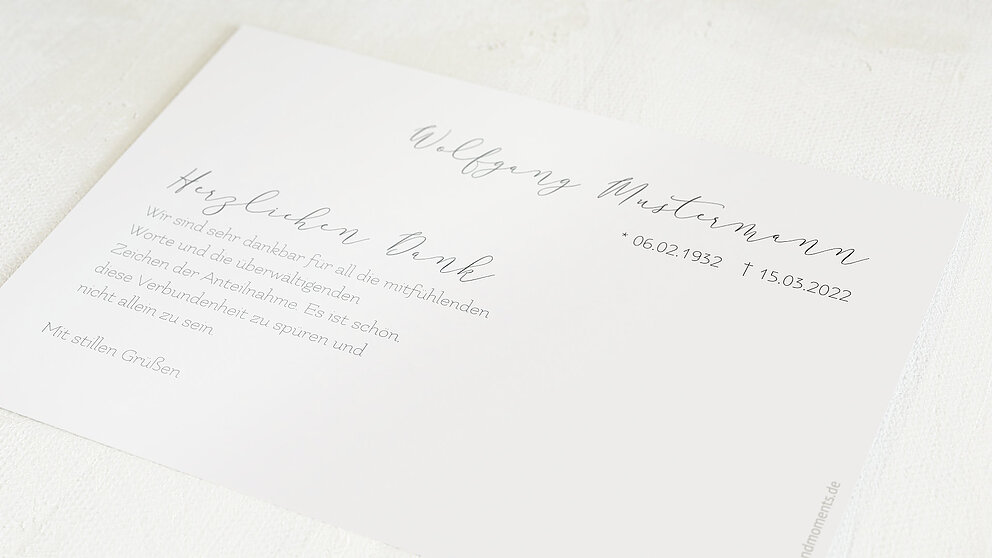 Wolfgang Mustermann
* 06.02.1932 † 15.03.2022
Herzlichen Dank
Wir sind sehr dankbar für all die mitfühlenden
Worte und die überwältigenden
Zeichen der Anteilnahme. Es ist schön,
diese Verbundenheit zu spüren und
nicht allein zu sein.
Mit stillen Grüßen
ndmoments.de